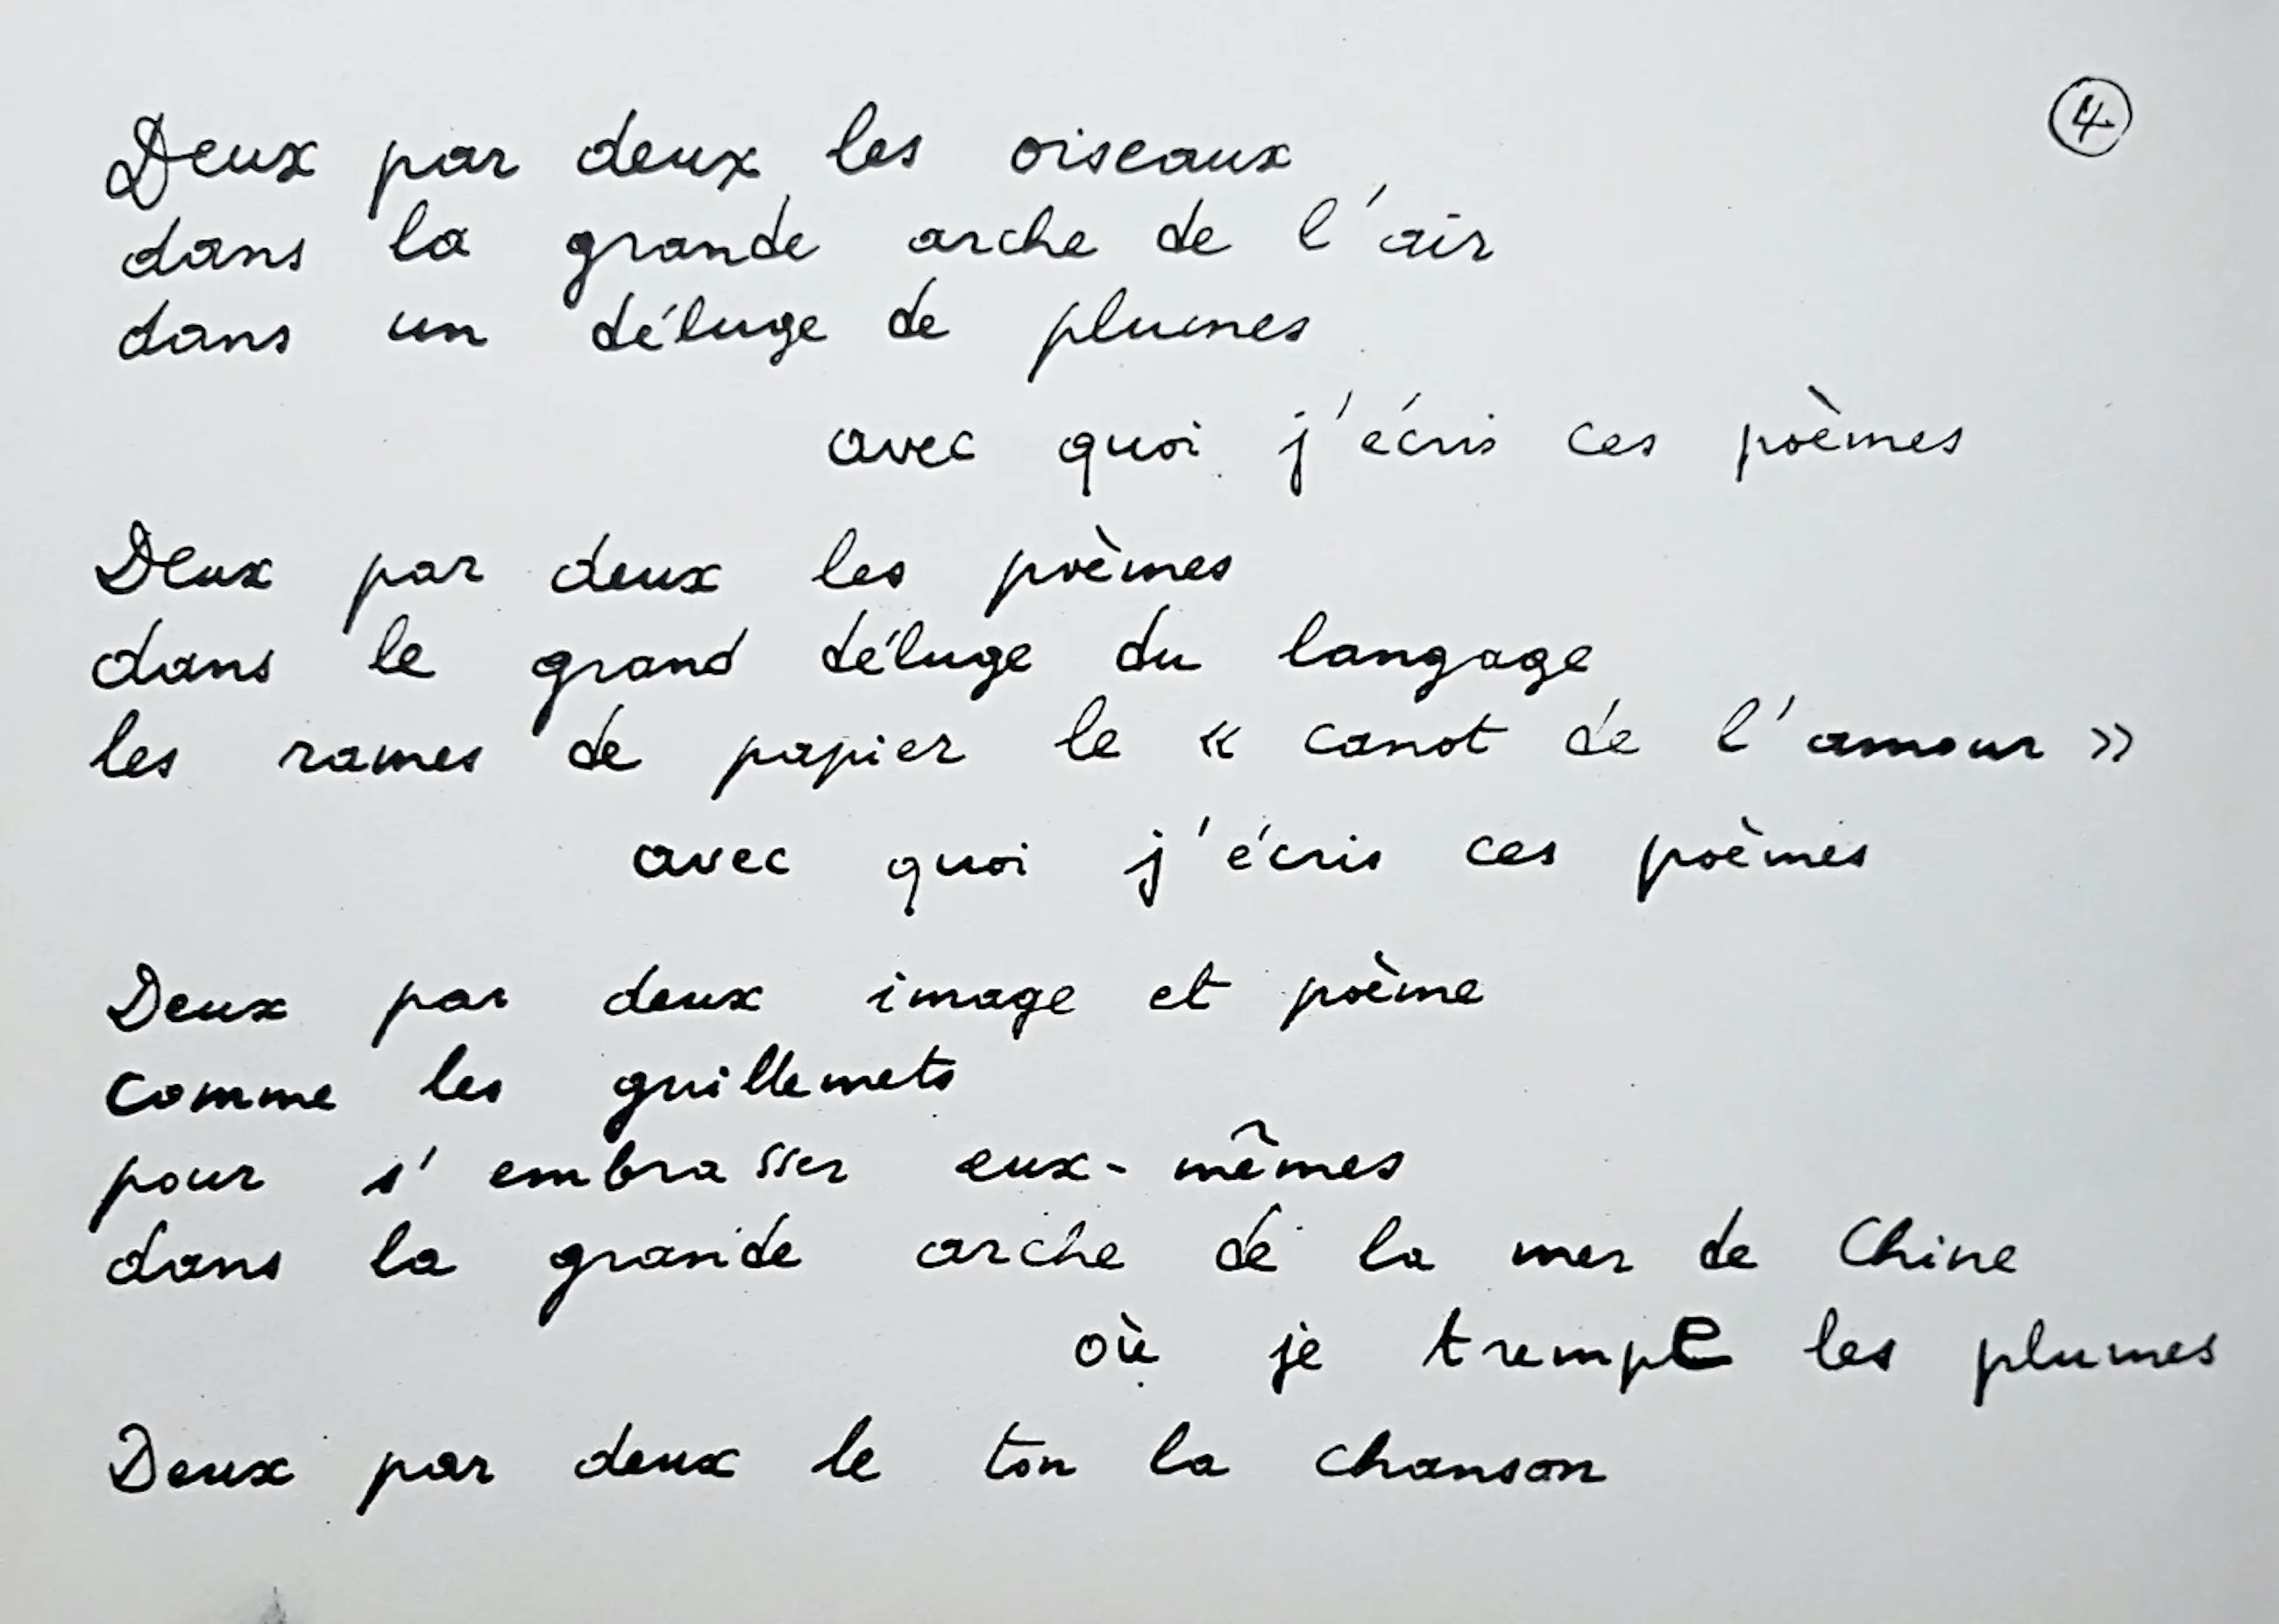 ④
Deux par deux les oiseaux
dans la grande arche de l'air
dans un déluge de plumes
avec quoi j'écris ces poèmes
Deux par deux les poèmes
dans le grand déluge du langage
les rames de papier le « canot de l'amour »
avec quoi j'écris ces poèmes
Deux par deux image et poème
comme les guillemets
pour s'embrasser eux-mêmes
dans la grande arche de la mer de Chine
où je trempe les plumes
Deux par deux le ton la chanson